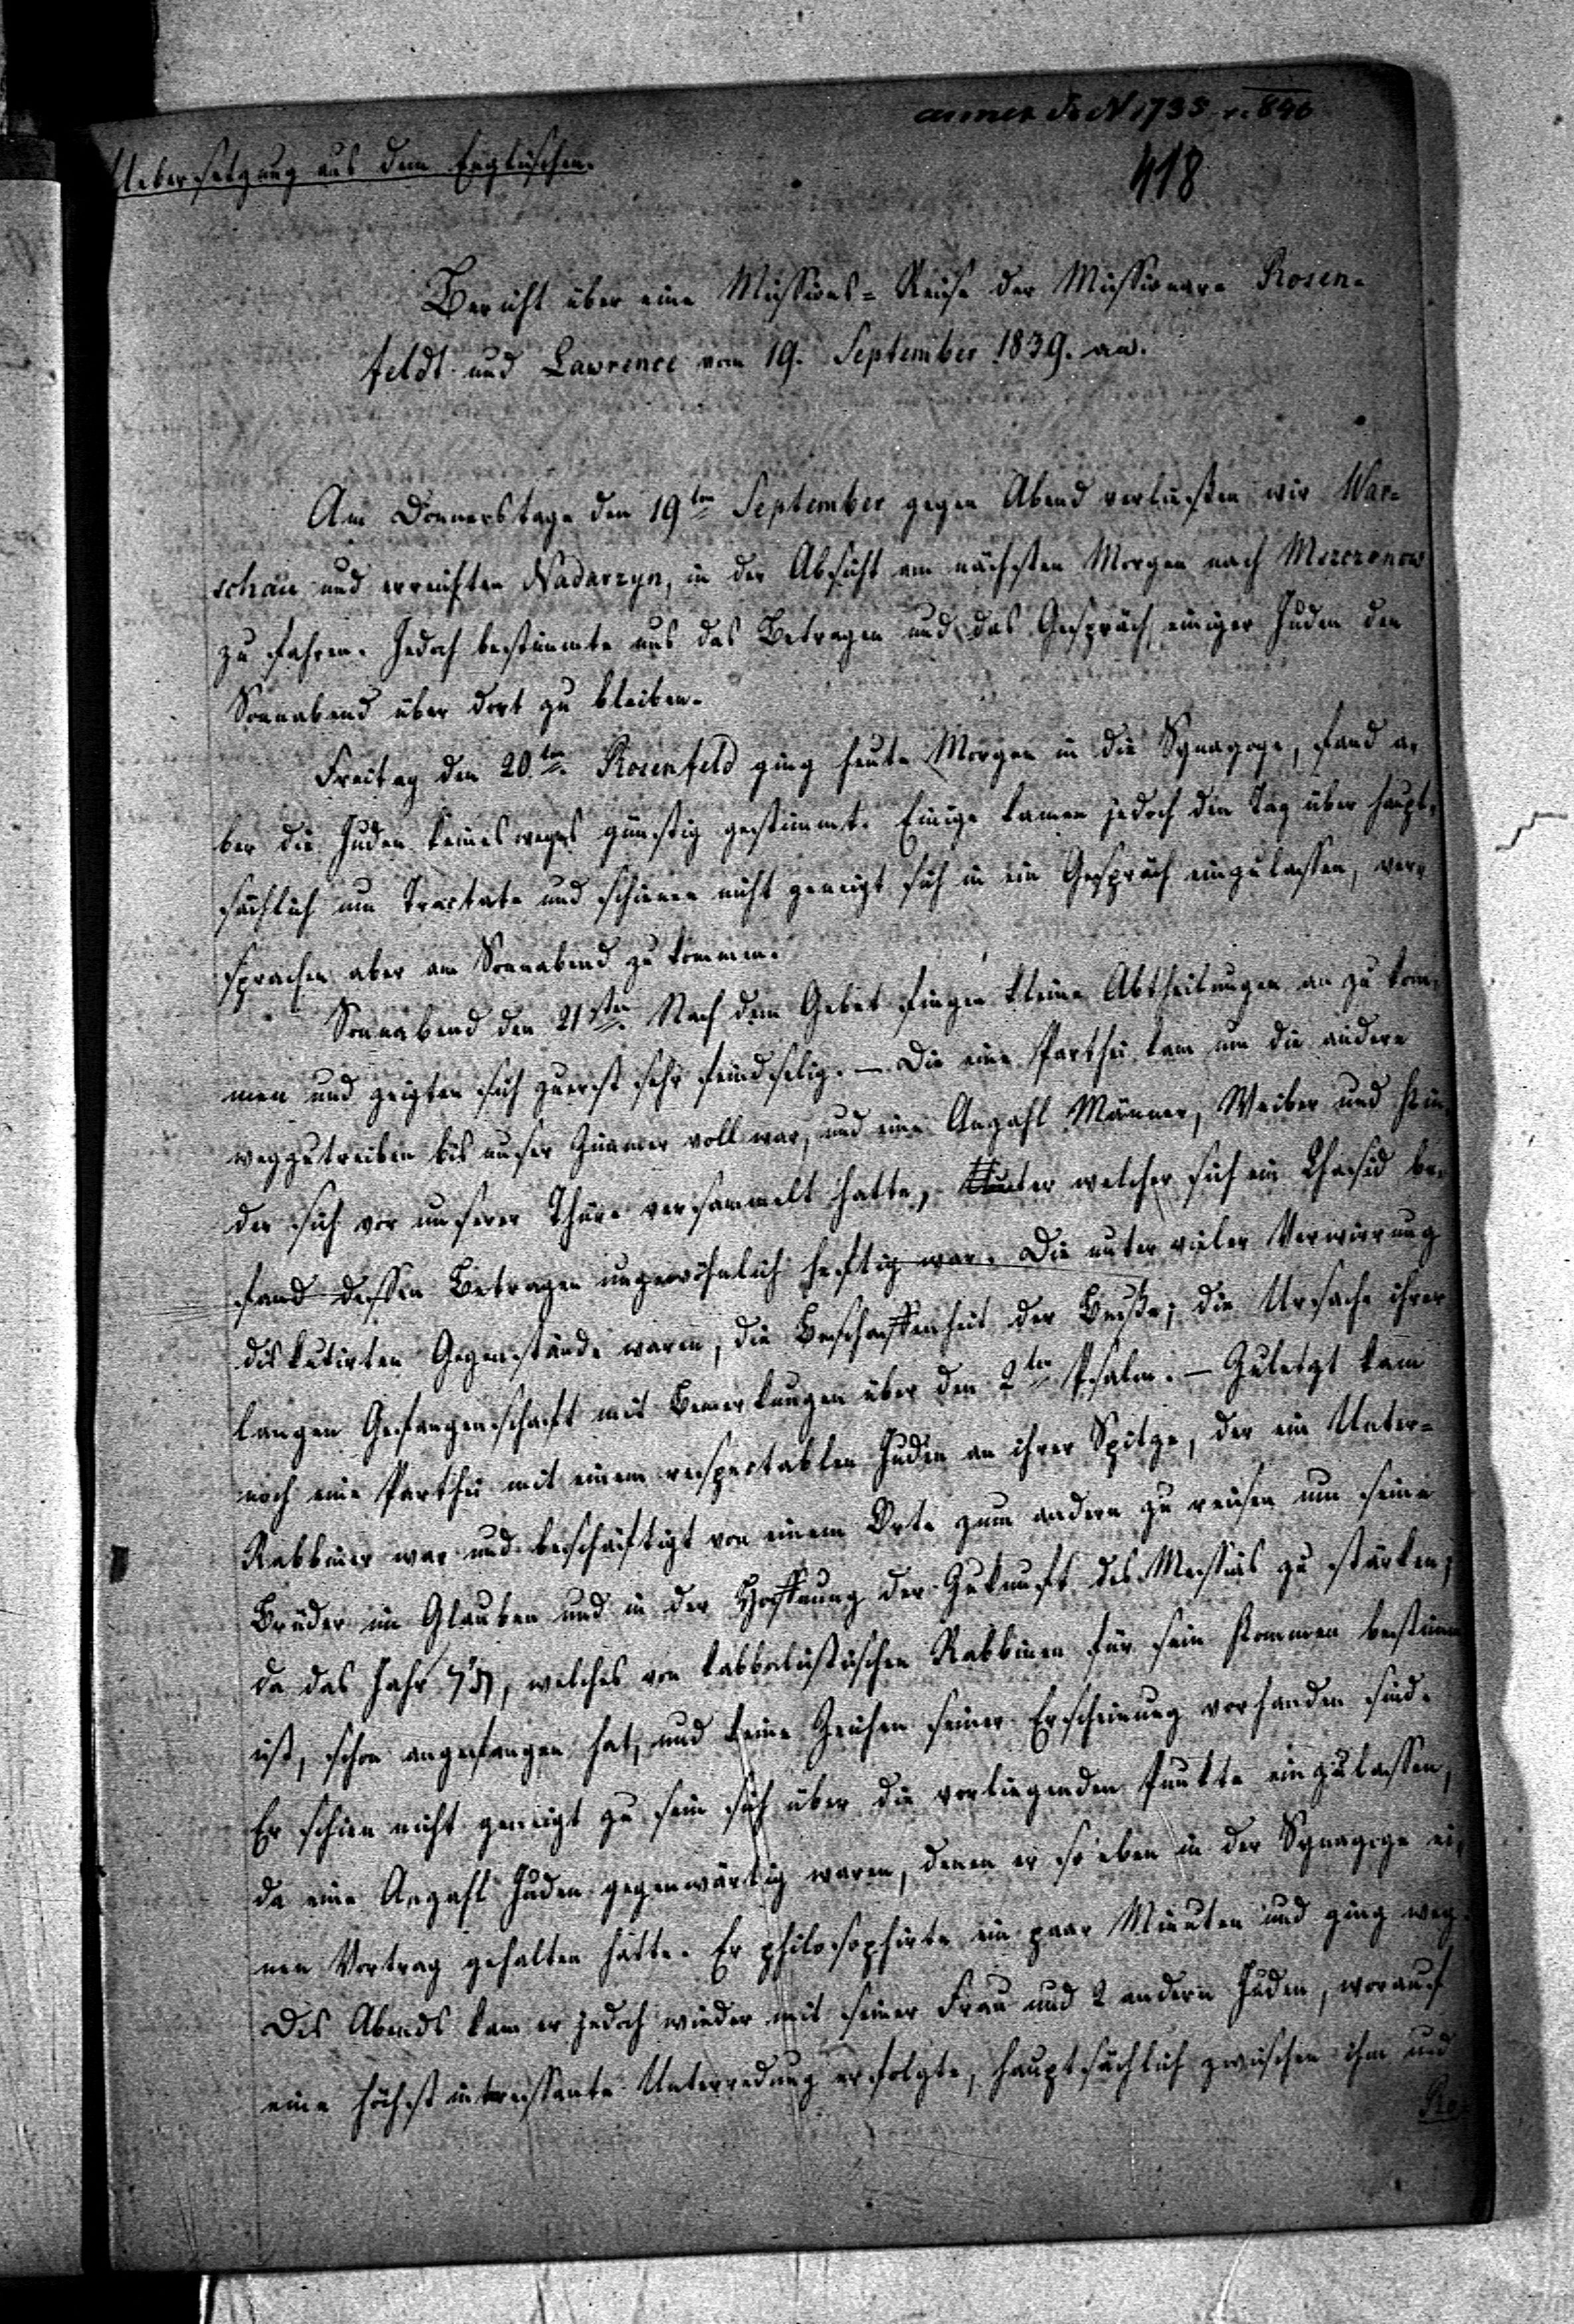 annex do N 1735 r. 840
418
Uebersetzung aus dem Englischen.
Bericht über eine Missions=Reise der Missionare Rosen-
feldt und Lawrence vom 19. September 1839. an.
Am Donnerstage den 19ten September gegen Abend verließen wir War-
schau und erreichten Nadarzyn, in der Absicht am nächsten Morgen nach Mszczonow
zu fahren. Jedoch bestimmte uns das Betragen und das Gespräch einiger Juden den
Sonnabend über dort zu bleiben.
Freitag den 20ten. Rosenfeld ging heute Morgen in die Synagoge, fand a-
ber die Juden keinesweges günstig gestimmt. Einige kamen jedoch den Tag über haupt-
sächlich um Tractate und schienen nicht geneigt sich in ein Gespräch einzulassen, ver-
sprachen aber am Sonnabend zu kommen.
Sonnabend den 21sten. Nach dem Gebet fingen kleine Abtheilungen an zu kom-
men und zeigten sich zuerst sehr feindselig. — Die eine Parthei kam um die andere
wegzutreiben bis unser Zimmer voll war, und eine Anzahl Männer, Weiber und Kin-
der sich vor unserer Thüre versammelt hatte, unter welcher sich ein Chasid be-
fand dessen Betragen ungewöhnlich heftig war. Die unter vieler Verwirrung
diskutirten Gegenstände waren, die Beschaffenheit der Buße; die Ursache ihrer
langen Gefangenschaft mit Bemerkungen über den 2ten Psalm. — Zuletzt kam
noch eine Parthei mit einem respectablen Juden an ihrer Spitze, der ein Unter=
Rabbiner war und beschäftigt von einem Orte zum andern zu reisen um seine
Brüder im Glauben und in der Hoffnung der Zukunft des Messias zu stärken;
da das Jahr ת״ר, welches von kabbalistischen Rabbinen für sein Kommen bestimmt
ist, schon angefangen hat, und keine Zeichen seiner Erscheinung vorhanden sind.
Er schien nicht geneigt zu sein sich über die vorliegenden Punkte einzulassen,
da eine Anzahl Juden gegenwärtig waren, denen er so eben in der Synagoge ei-
nen Vortrag gehalten hatte. Er philosophirte ein paar Minuten und ging weg.
Des Abends kam er jedoch wieder mit seiner Frau und 2 andern Juden, worauf
eine höchst interessante Unterredung erfolgte, hauptsächlich zwischen ihm und
Ro-